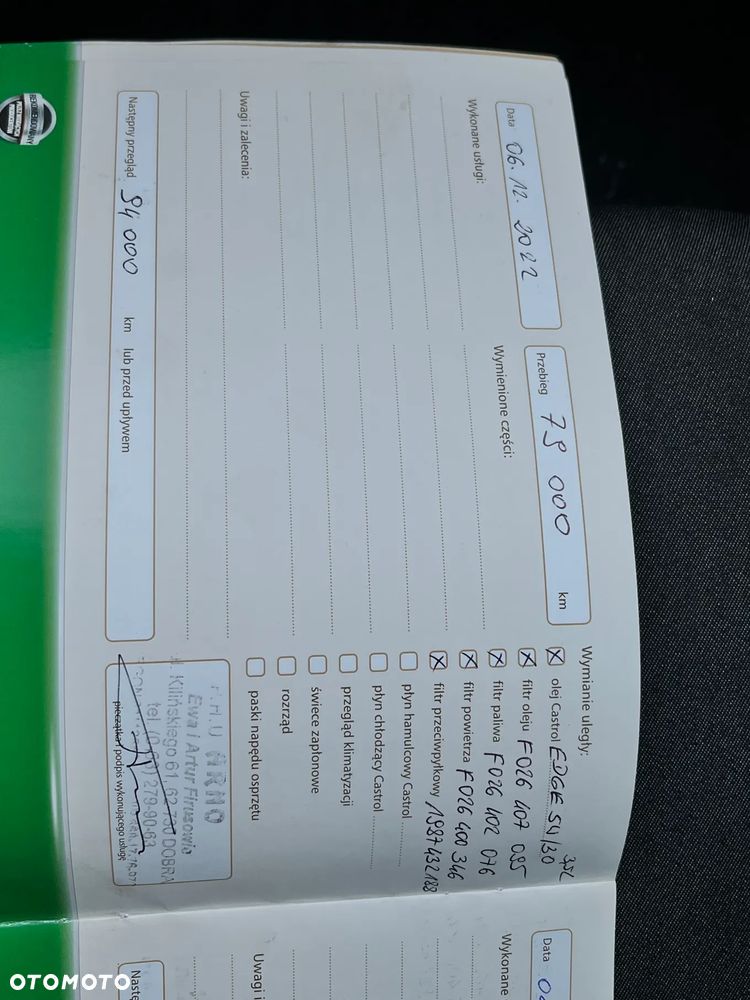 Data 06.12.2022
Przebieg 79 000 km
Wykonane usługi:
Wymienione części:
Uwagi i zalecenia:
Następny przegląd 94 000 km lub przed upływem
Wymianie uległy:
olej Castrol EDGE 5W/30
filtr oleju F026 407 095
filtr paliwa F026 402 076
filtr powietrza F026 400 346
filtr przeciwpyłkowy 1987432188
płyn hamulcowy Castrol
płyn chłodzący Castrol
przegląd klimatyzacji
świece zapłonowe
rozrząd
paski napędu osprzętu
Ewa i Artur
Kilińskiego 61, 62-730 DOBRA
279-90-63
pieczątka i podpis wykonującego usługę
Data
Wykonane
Uwagi i
Nastę
OTOMOTO